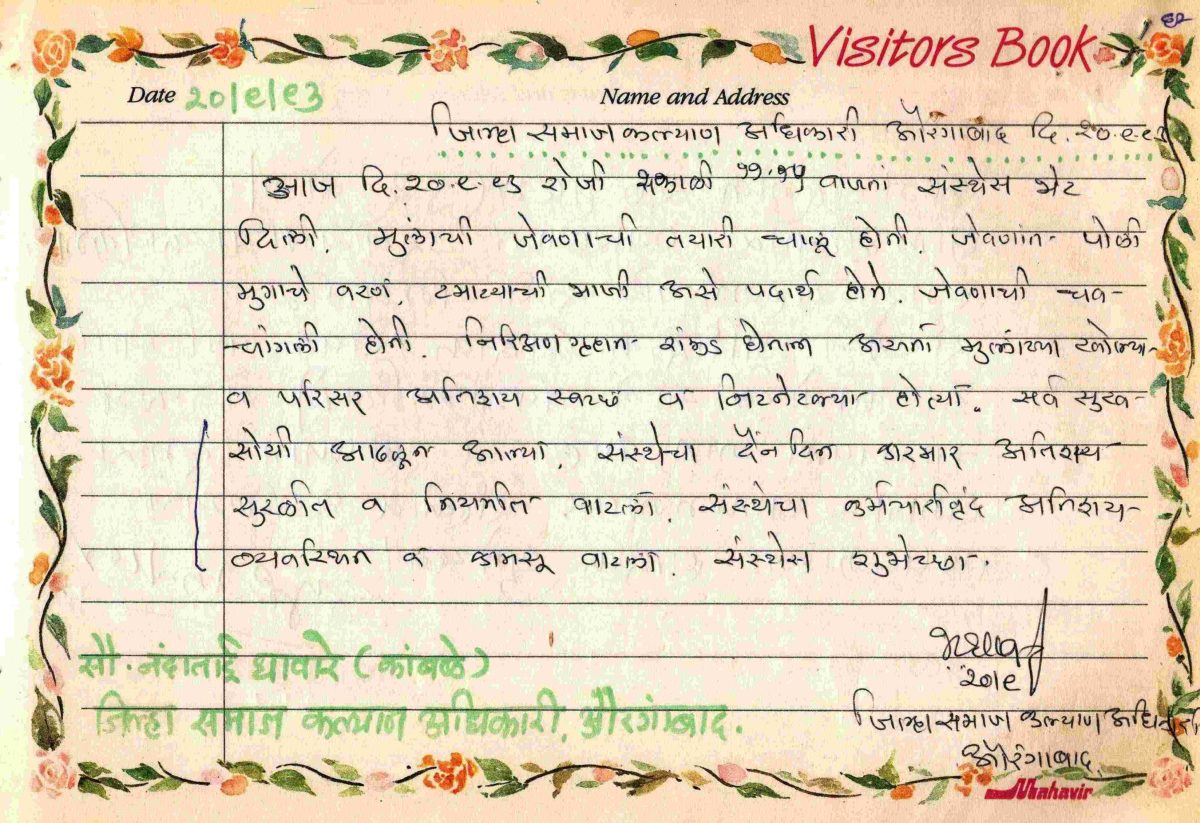 ६०
Visitors Book
Date २०/९/९३
Name and Address
जिल्हा समाज कल्याण अधिकारी औरंगाबाद दि. २०.९.९३
आज दि. २०.९.९३ रोजी सकाळी ११.४५ वाजता संस्थेस भेट
दिली. मुलांची जेवणाची तयारी चालू होती. जेवणात पोळी
मुगाचे वरण, टमाट्याची भाजी असे पदार्थ होते. जेवणाची चव
चांगली होती. निरिक्षण गृहात असता मुलांच्या खोल्या
व परिसर अतिशय स्वच्छ व निटनेटक्या होत्या. सर्व सुख
सोयी आढळून आल्या. संस्थेचा दैनंदिन कारभार अतिशय
सुरळीत व नियमीत वाटला. संस्थेचा कर्मचारीवृंद अतिशय
व्यवस्थित व कामसू वाटला. संस्थेस शुभेच्छा.
२०/९
सौ. नंदाताई घावारे (कांबळे)
जिल्हा समाज कल्याण अधिकारी, औरंगाबाद.
जिल्हा समाज कल्याण अधिकारी
औरंगाबाद.
Mahavir